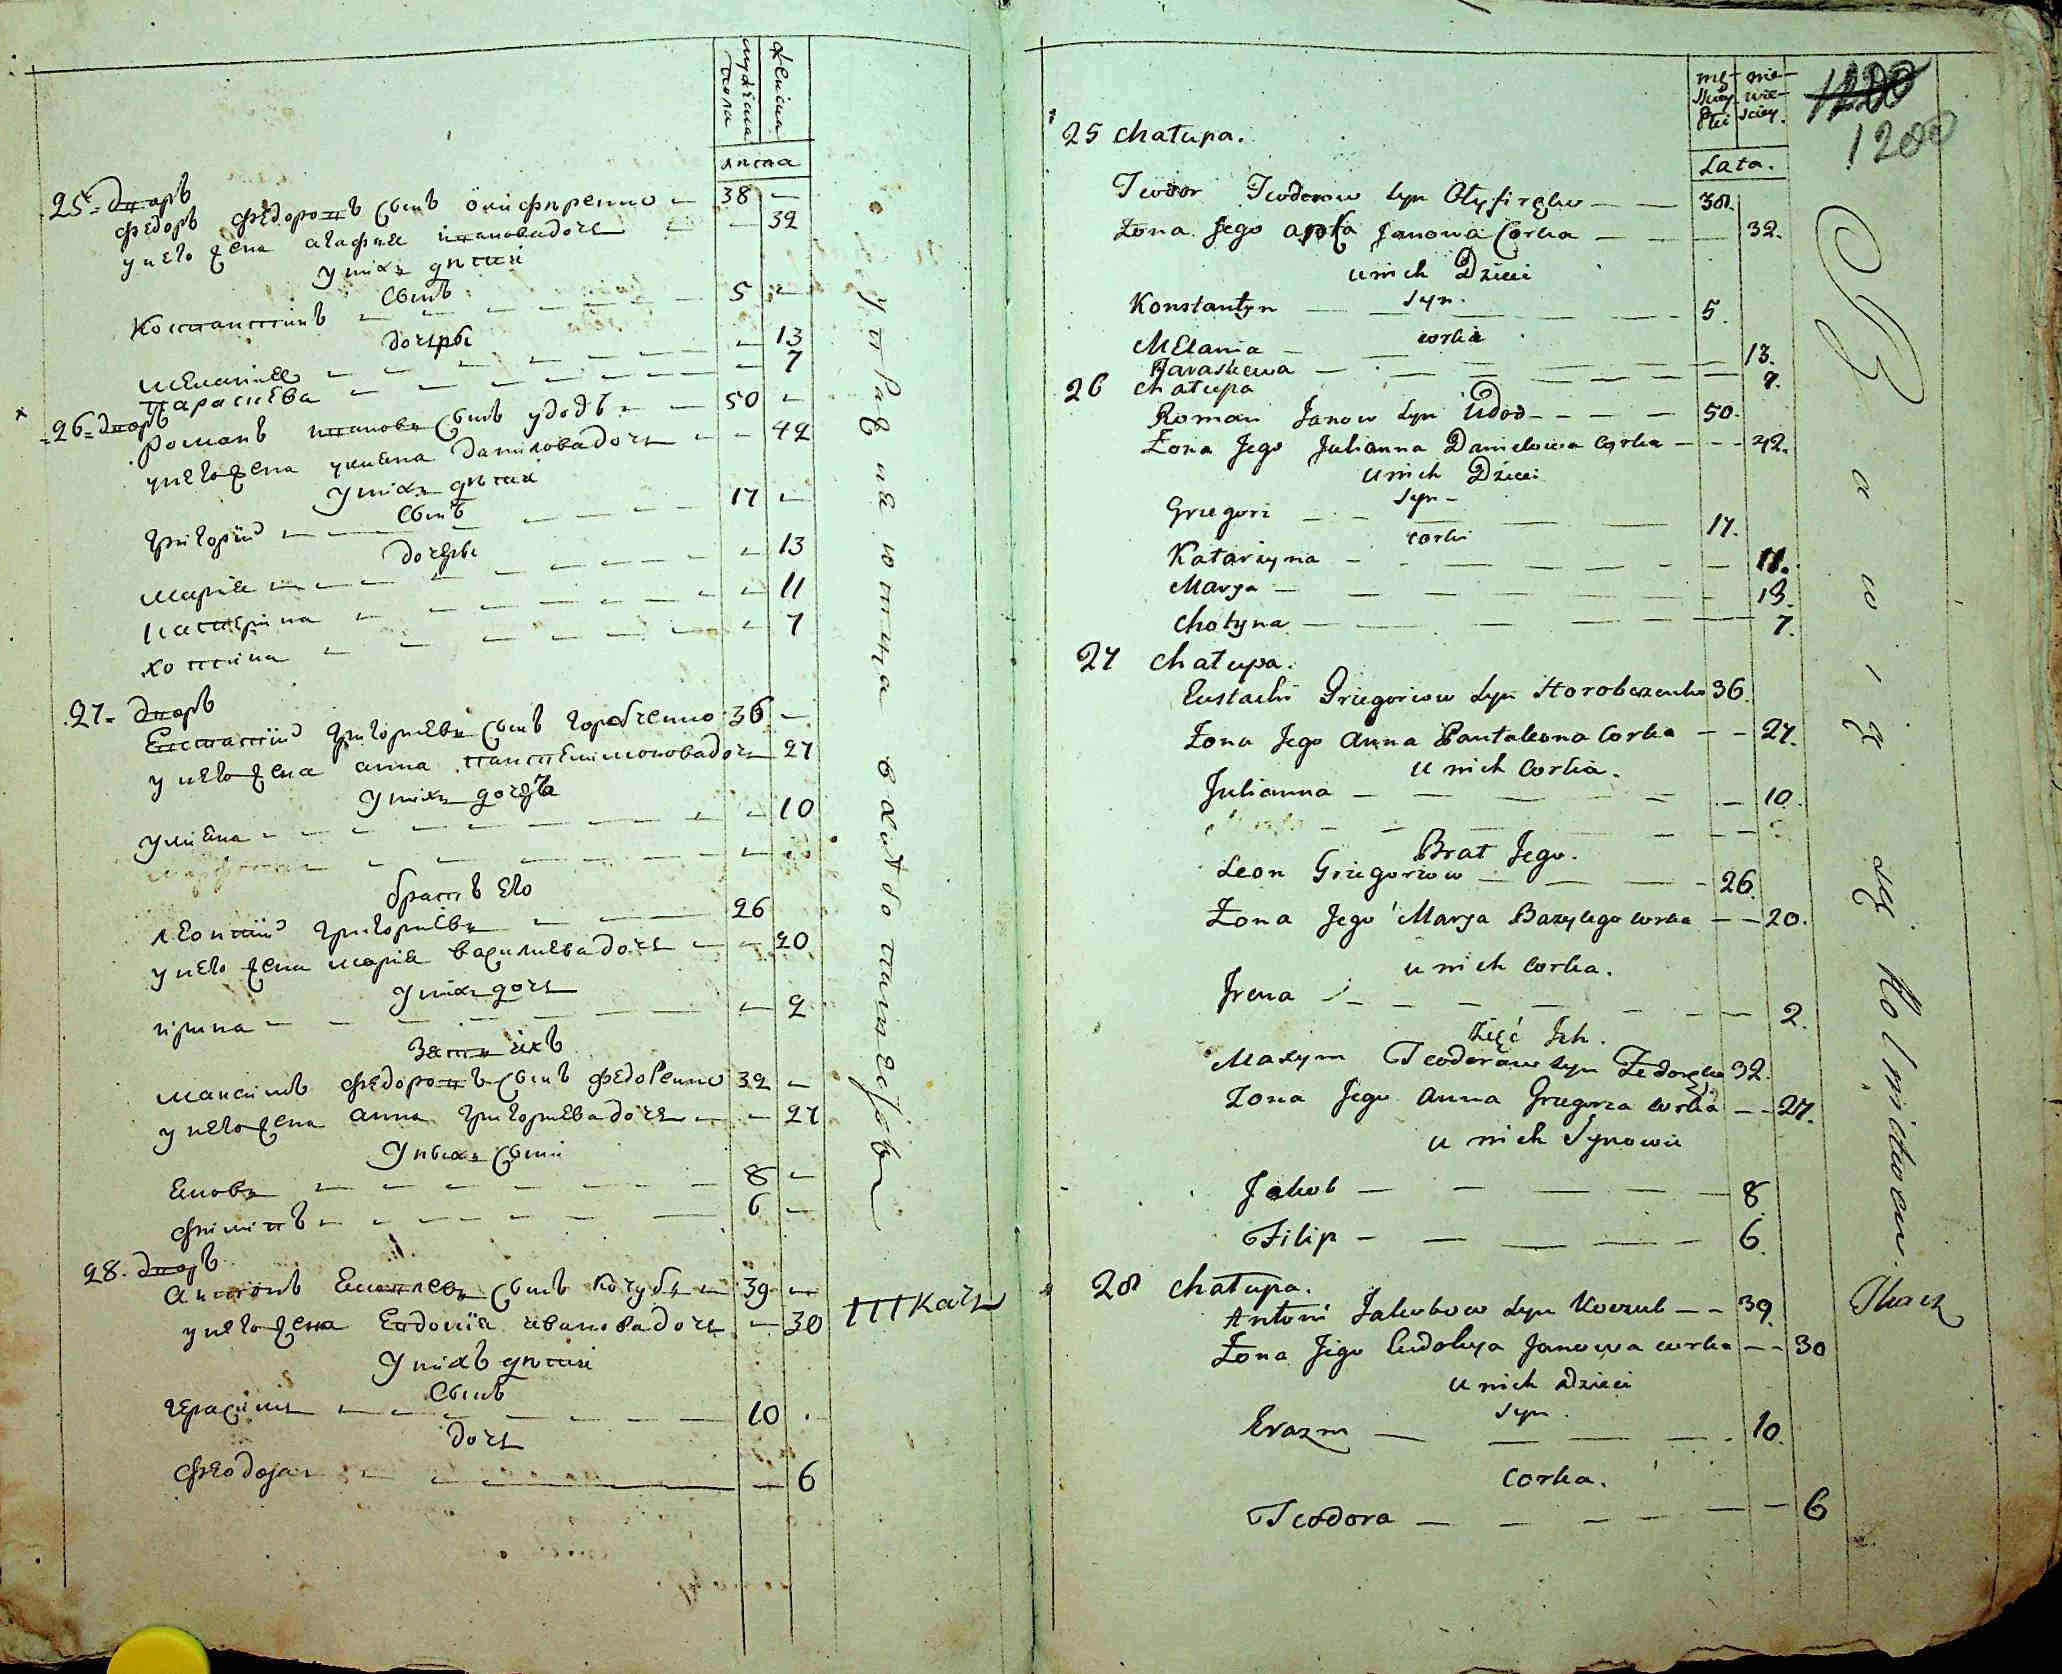 мужеска пола
женска
лѣта
25 дворъ
Федоръ Федоровъ сынъ Олифѣренко 38
у него жена агафия ивановадочь 32
у нихъ дѣти
сынъ
Константинъ 5
дочери
мелания 13
параскева 7
26 дворъ
Романъ ивановъ сынъ удодъ 50
у него жена улияна даниловадочь 42
у нихъ дѣти
сынъ
григорий 17
дочери
мария 13
катерина 11
хотина 7
27 дворъ
Евстатий григориевъ сынъ горобченко 36
у него жена анна пантелимоновадочь 27
у нихъ дочь
улияна 10
братъ его
леонтий григориевъ 26
у него жена мария василиевадочь 20
у нихъ дочь
ирина 2
зять ихъ
максимъ федоровъ сынъ федоренко 32
у него жена анна григориевадочь 27
у ныхъ сыни
яковъ 8
филипъ 6
28 дворъ
антонъ яковлевъ сынъ кочубъ 39
у него жена Евдокия ивановадочь 30
у нихъ дѣти
сынъ
герасимъ 10
дочь
феодора 6
ткачъ
mę- skiey Płci
nie- wie- sciey.
Lata.
1200
1200
25 chałupa.
Teodor Teodorow syn Ołyfirenko 38.
Żona Jego Janowa Corka 32.
u nich Dzieci
syn.
Konstantyn 5.
corki
Melania 13.
Paraskewa 7.
26 chałupa
Roman Janow syn Udod 50.
Żona Jego Julianna Daniełowa Corka 42.
u nich Dzieci
syn
Grzegorz 17.
corki
Katarzyna 11.
Marya 13.
Chotyna 7.
27 chałupa.
Eustachi Grzegorzow syn Horobczenko 36.
Żona Jego Anna Pantaleona Corka 27.
u nich Corka.
Julianna 10.
Brat Jego.
Leon Grzegorzow 26.
Żona Jego Marya Bazylego corka 20.
u nich Corka.
Irena 2.
Zięć Ich.
Maxym Teodorow syn Fedorenko 32.
Żona Jego Anna Grzegorza corka 27.
u nich Synowie
Jakob 8
Filip 6.
28 chałupa.
Antoni Jakubow syn Koczub 39.
Żona Jego Eudokya Janowa corka 30
u nich dzieci
syn.
Erazm 10.
Corka.
Teodora 6
Bawią się Rolnictwem.
Tkacz